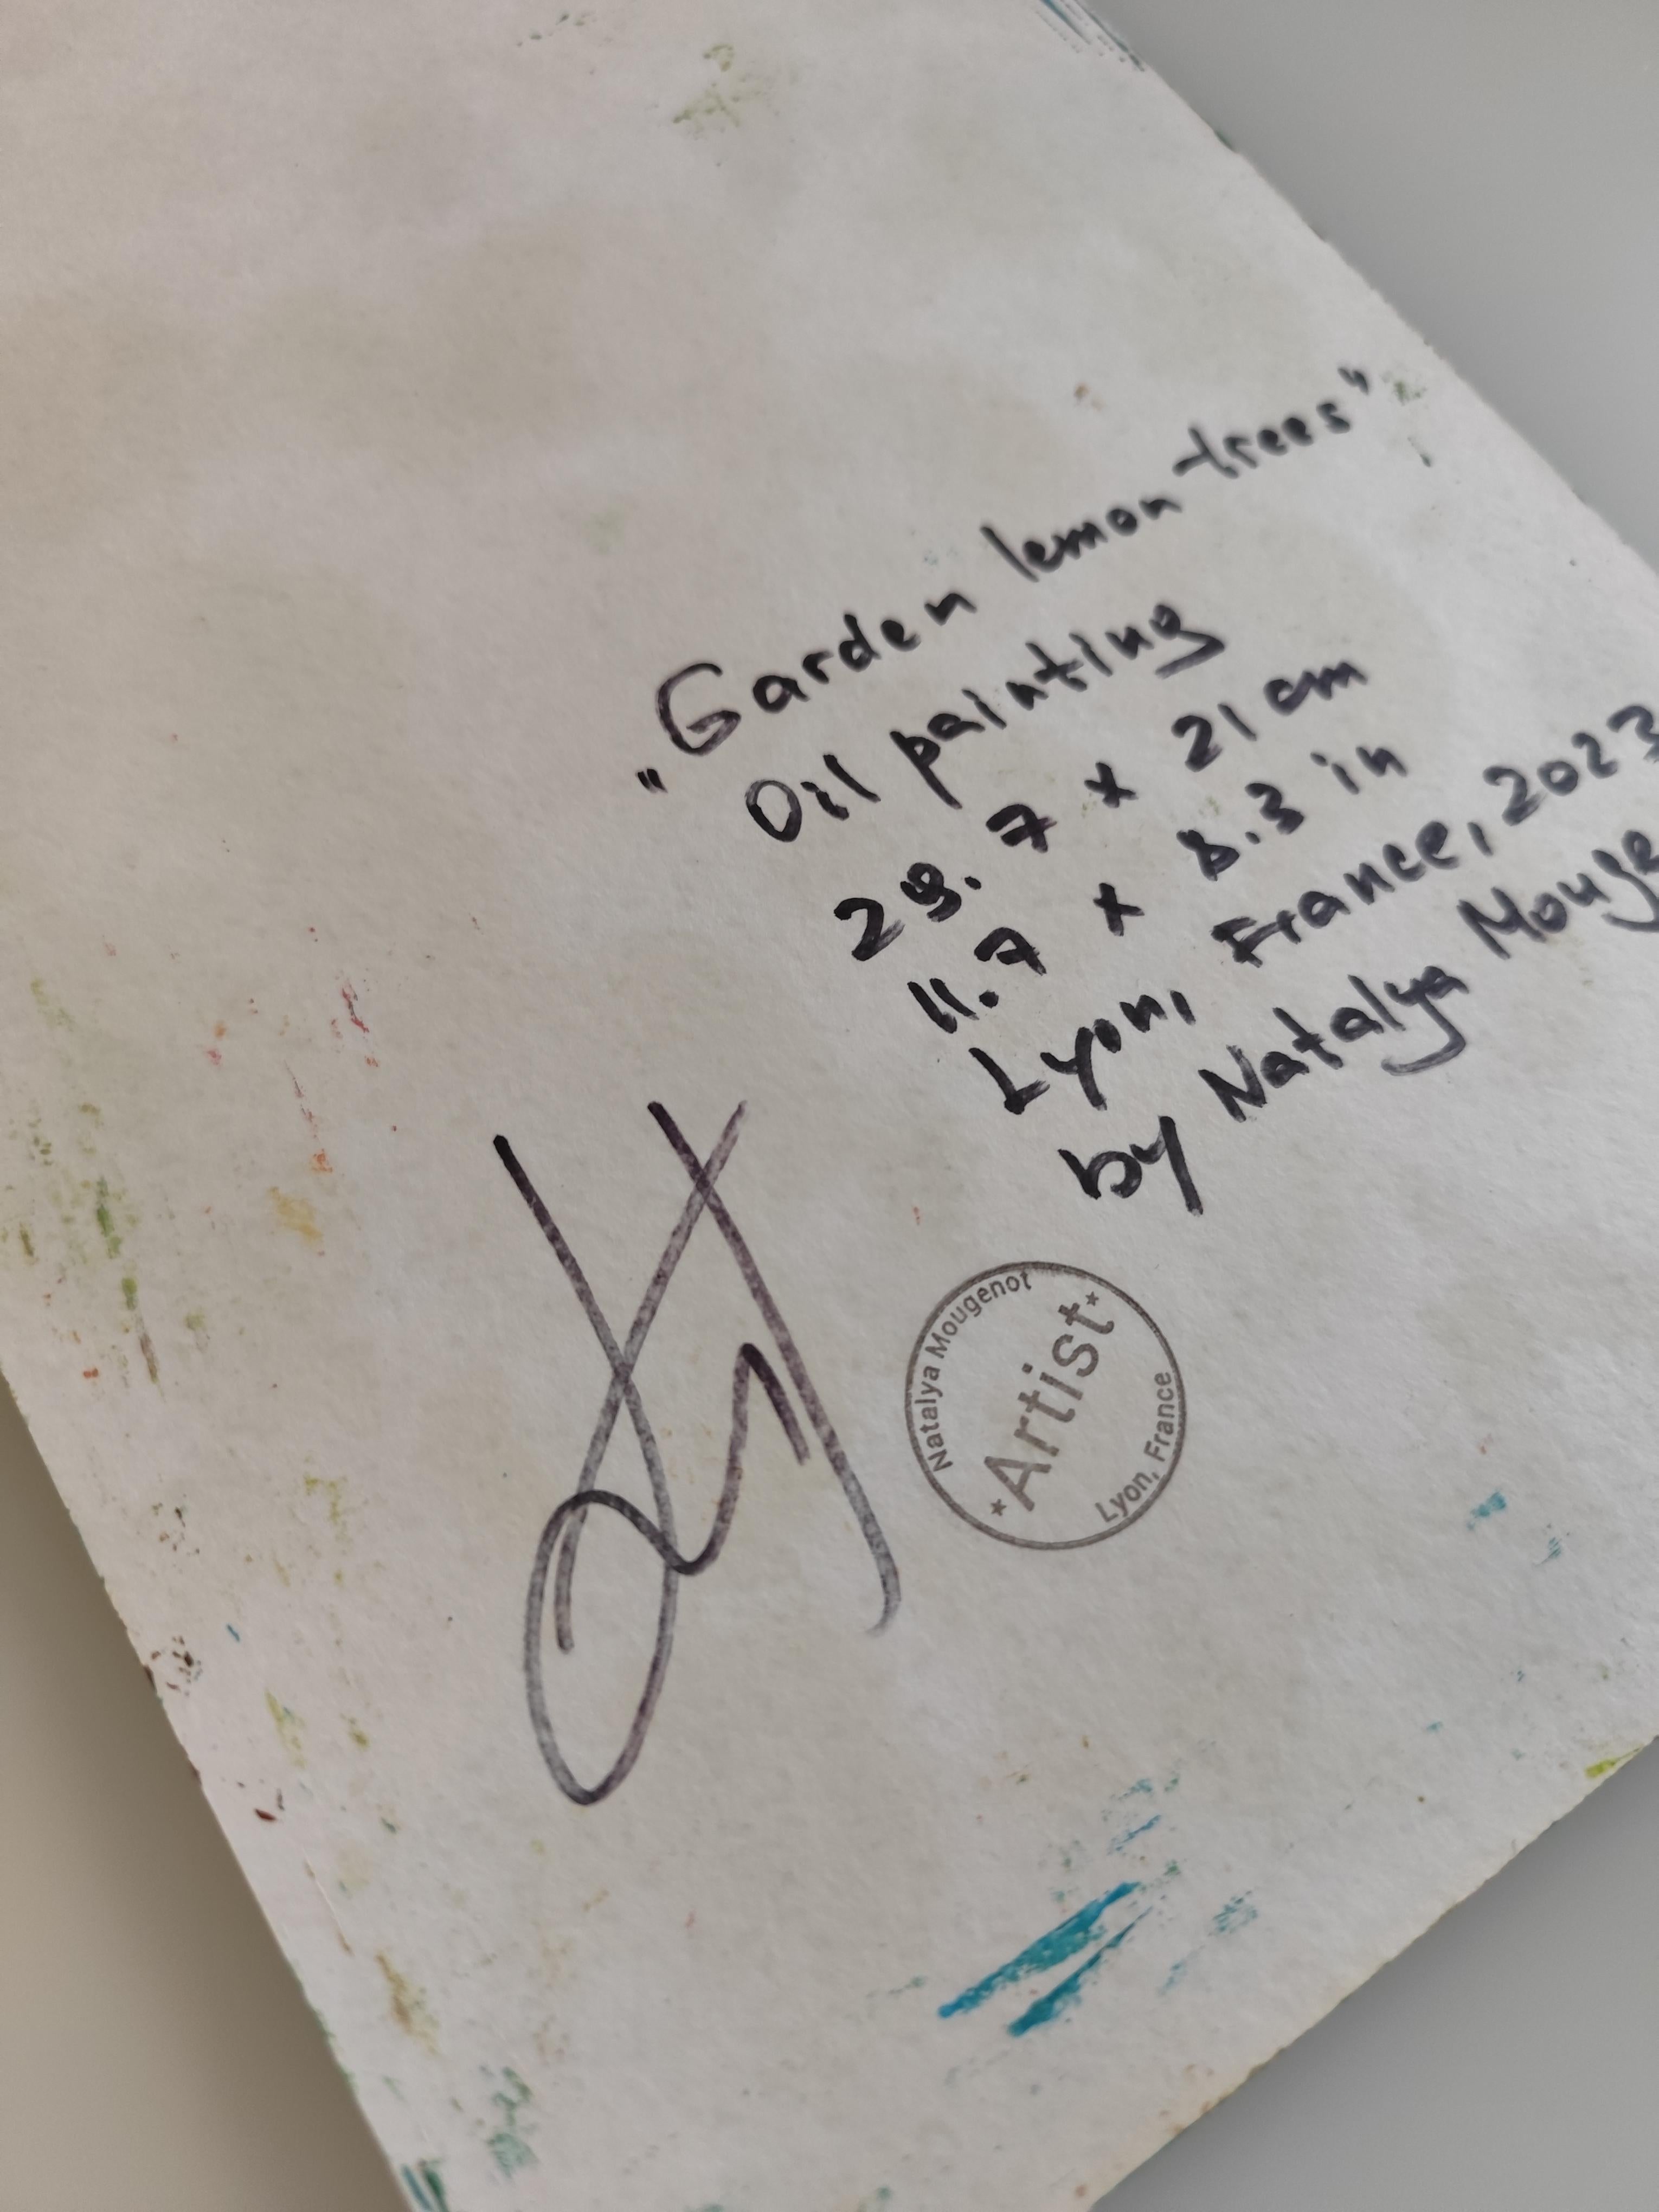 "Garden lemon trees"
Oil painting
29.7 x 21 cm
11.7 x 8.3 in
Lyon, France, 2023
by Natalya Mouge
Natalya Mougenot
*Artist*
Lyon, France